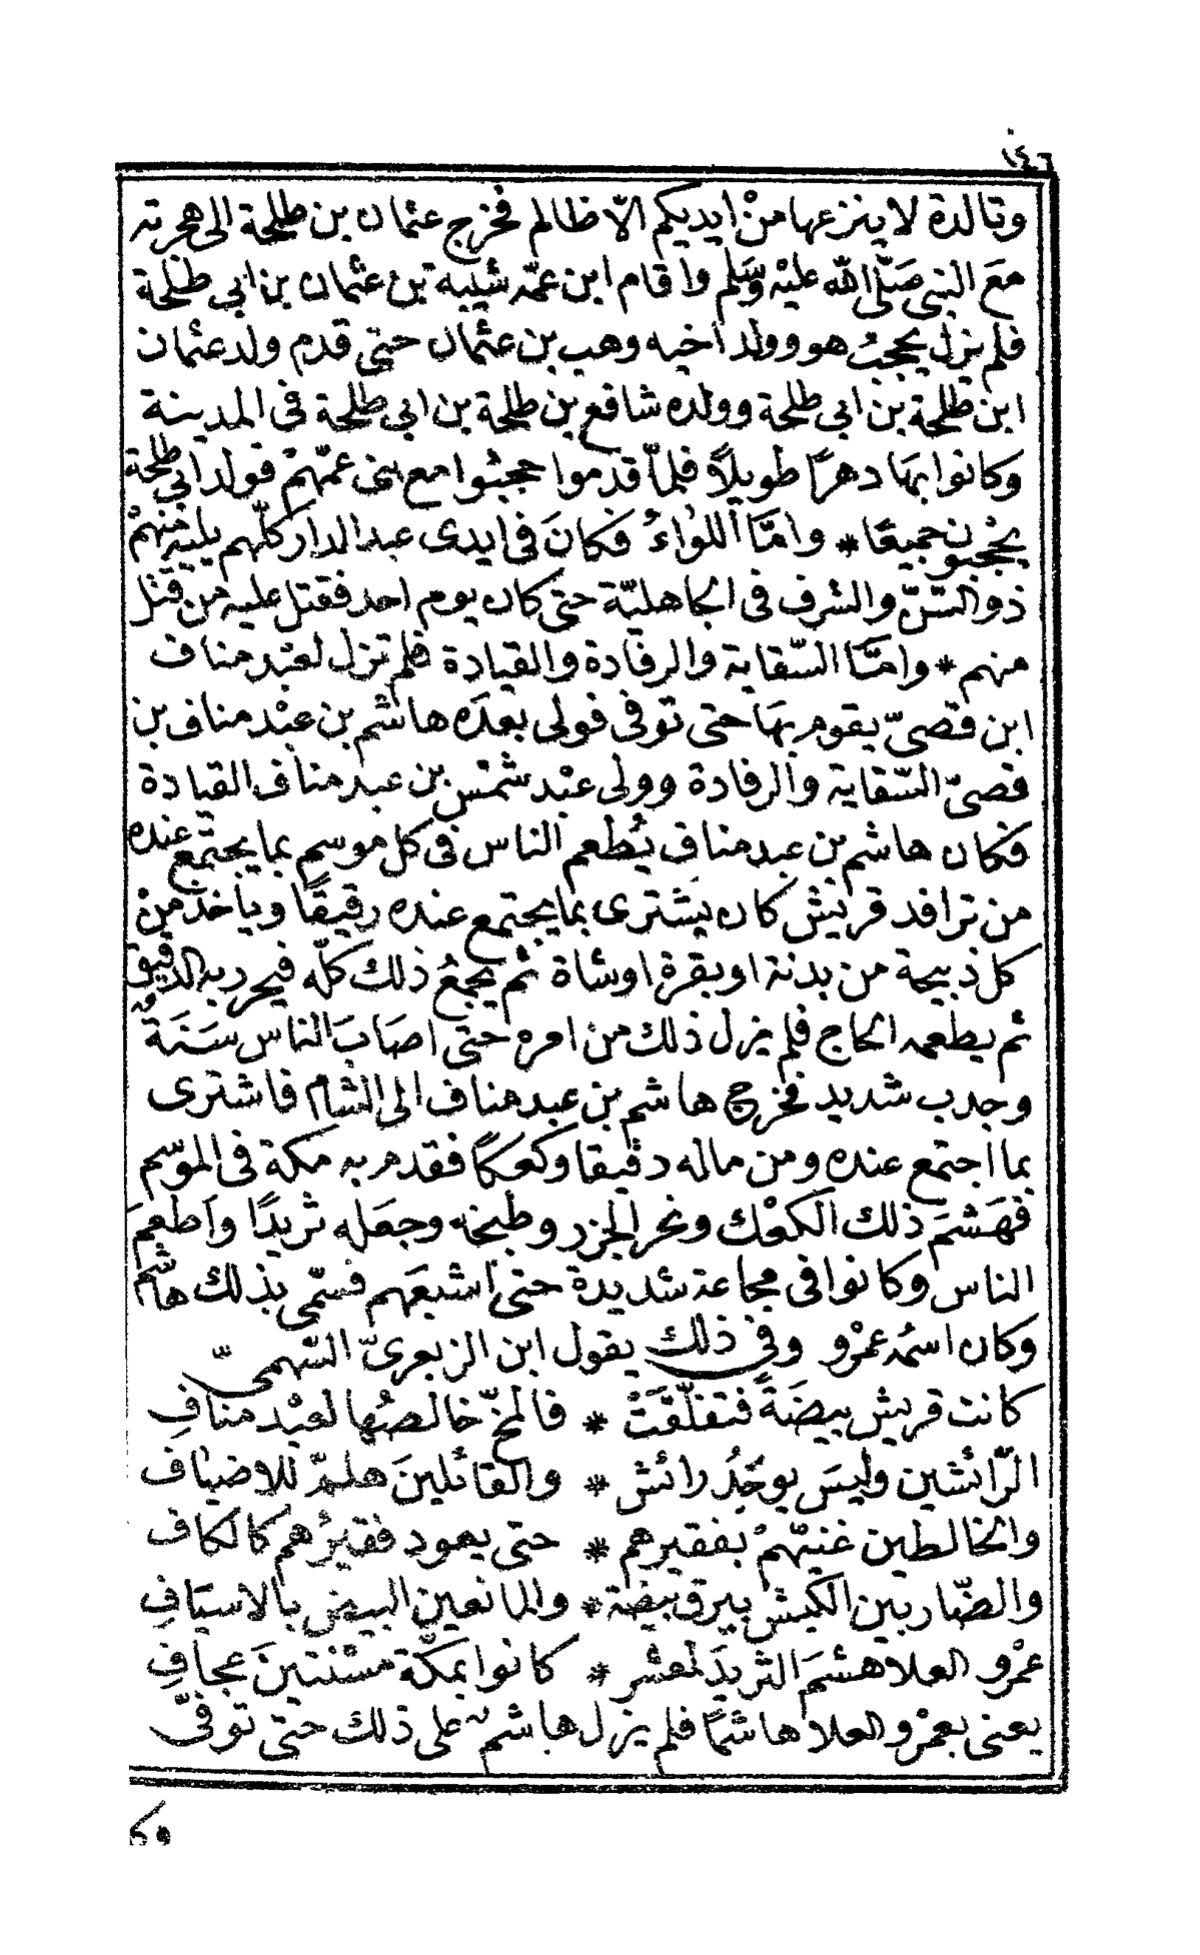 ١٤٦
وتالدة لا ينزعها منْ ايديكم الّا ظالم فخرج عثمان بن طلحة الى هجرته
معَ النبى صَلّى الله عليْه وَسَلم واقام ابن عمّه شيبة بن عثمان بن ابى طلحة
فلم نزل يحجبُ هو وولد اخيه وهب بن عثمان حتى قدم ولد عثمان
ابن طلحة بن ابى طلحة وولده شافع بن طلحة بن ابى طلحة فى المدينة
وكانوا بهَا دهرًا طويلاً فلمّا قدموا حجبُوا مع بنى عمّهمْ فولد ابى طلحة
يحْجبون جميعًا * وامّا اللواءُ فكانَ فى ايدى عبد الدار كلّهم يليه منهمْ
ذو السّنّ والشرف فى الجاهليّة حتى كان يوم احد فقتل عليه من قتل
منهم * وامّا السّقاية والرفادة والقيادة فلم تزل لعبْد مناف
ابن قصىّ يقوم بهَا حتى توفى فولى بعدَه هاشم بن عبْد مناف بن
قصىّ السّقاية والرفادة وولى عبْد شمْس بن عبد مناف القيادة
فكان هاشم بن عبد مناف يُطعم الناس فى كل موسم بما يجتمع عنده
من ترافد قريش كان يشترى بما يجتمع عنده رقيقًا وياخذ منْ
كل ذبيحة من بدنة او بقرة او شاة ثم يجمعُ ذلك كلّه فيحرر به الدقيق
ثم يطعمه الحاج فلم يزل ذلك من امره حتى اصَابَ الناس سَنَةٌ
وجدب شديد فخرج هاشم بن عبد مناف الى الشام فاشترى
بما اجتمع عنده ومن ماله دقيقا وكعكًا فقدم به مكة فى الموسم
فهَشمَ ذلك الكعْك ونحر الجزر وطبخه وجعَله ثريدًا واَطعمَ
الناس وكانوا فى مجاعة شديدة حتى اشبعَهم فسمّى بذلك هاشم
وكان اسمُه عمْرو وفى ذلك يقول ابن الزبعرىّ السّهمىّ
كانت قريش بيضَةً فتفلّقَتْ * فالمخّ خالصُها لعبْد منافِ
الرّائشين وليسَ يوجَدُ رائش * والقائلينَ هلمّ للاضياف
والخالطين غنيّهمْ بفقيرهم * حتى يعود فقيرُهم كالكاف
والضّاربين الكبش يبرق بيضة * والمانعين البيض بالاسيَافِ
عمْرو العلا هشمَ الثريدَ لمعْشر * كانوا بمكّة مسْنتينَ عجافِ
يعنى بعمْرو العلا هاشمًا فلم يزل هاشم على ذلك حتى توفىّ
وكا